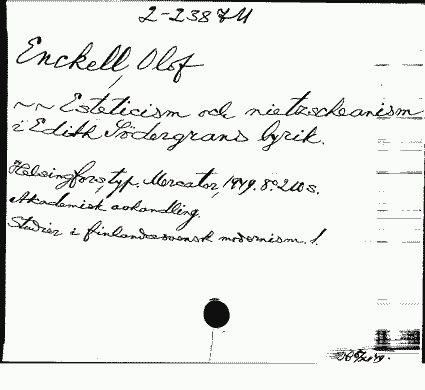 2-23874
Enckell, Olof
~~ Esteticism och nietzscheanism
i Edith Södergrans lyrik.
Helsingfors, typ. Mercator, 1949. 8:o 210 s.
Akademisk avhandling.
Studier i finlandssvensk modernism. 1.